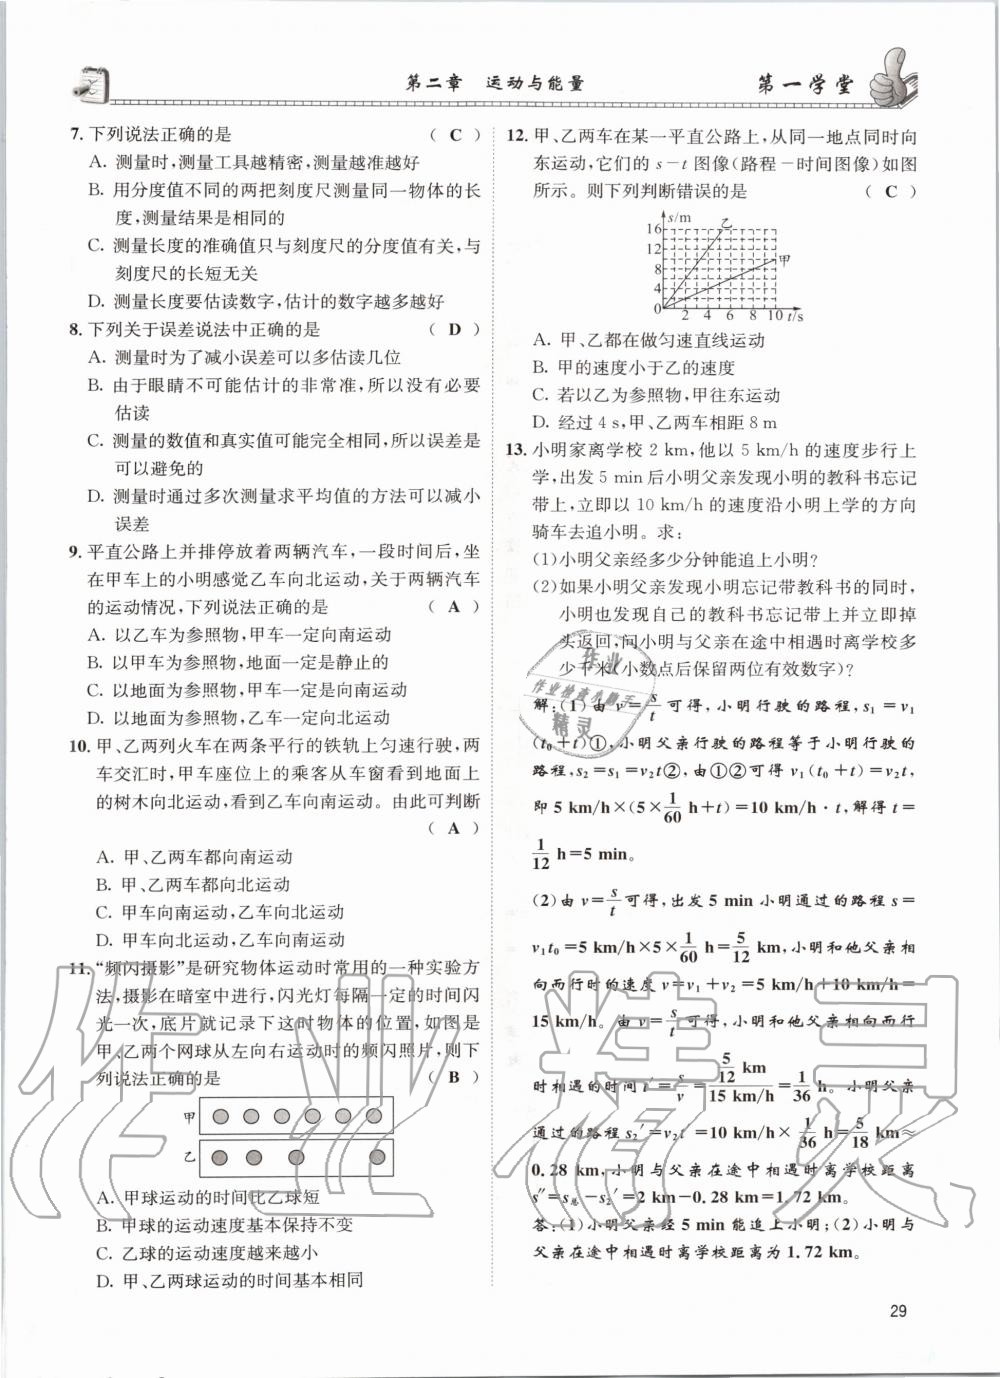 第二章 运动与能量 第一学堂
7. 下列说法正确的是 ( C )
A. 测量时,测量工具越精密,测量越准越好
B. 用分度值不同的两把刻度尺测量同一物体的长
度,测量结果是相同的
C. 测量长度的准确值只与刻度尺的分度值有关,与
刻度尺的长短无关
D. 测量长度要估读数字,估计的数字越多越好
8. 下列关于误差说法中正确的是 ( D )
A. 测量时为了减小误差可以多估读几位
B. 由于眼睛不可能估计的非常准,所以没有必要
估读
C. 测量的数值和真实值可能完全相同,所以误差是
可以避免的
D. 测量时通过多次测量求平均值的方法可以减小
误差
9. 平直公路上并排停放着两辆汽车,一段时间后,坐
在甲车上的小明感觉乙车向北运动,关于两辆汽车
的运动情况,下列说法正确的是 ( A )
A. 以乙车为参照物,甲车一定向南运动
B. 以甲车为参照物,地面一定是静止的
C. 以地面为参照物,甲车一定向南运动
D. 以地面为参照物,乙车一定向北运动
10. 甲、乙两列火车在两条平行的铁轨上匀速行驶,两
车交汇时,甲车座位上的乘客从车窗看到地面上
的树木向北运动,看到乙车向南运动。由此可判断
( A )
A. 甲、乙两车都向南运动
B. 甲、乙两车都向北运动
C. 甲车向南运动,乙车向北运动
D. 甲车向北运动,乙车向南运动
11. “频闪摄影”是研究物体运动时常用的一种实验方
法,摄影在暗室中进行,闪光灯每隔一定的时间闪
光一次,底片就记录下这时物体的位置,如图是
甲、乙两个网球从左向右运动时的频闪照片,则下
列说法正确的是 ( B )
甲
乙
A. 甲球运动的时间比乙球短
B. 甲球的运动速度基本保持不变
C. 乙球的运动速度越来越小
D. 甲、乙两球运动的时间基本相同
12. 甲、乙两车在某一平直公路上,从同一地点同时向
东运动,它们的 s-t 图像(路程-时间图像)如图
所示。则下列判断错误的是 ( C )
s/m
16
12
8
4
0
乙
甲
2 4 6 8 10 t/s
A. 甲、乙都在做匀速直线运动
B. 甲的速度小于乙的速度
C. 若以乙为参照物,甲往东运动
D. 经过 4 s,甲、乙两车相距 8 m
13. 小明家离学校 2 km,他以 5 km/h 的速度步行上
学,出发 5 min 后小明父亲发现小明的教科书忘记
带上,立即以 10 km/h 的速度沿小明上学的方向
骑车去追小明。求:
(1)小明父亲经多少分钟能追上小明?
(2)如果小明父亲发现小明忘记带教科书的同时,
小明也发现自己的教科书忘记带上并立即掉
头返回,问小明与父亲在途中相遇时离学校多
少千米(小数点后保留两位有效数字)?
解:(1)由 v=s/t 可得,小明行驶的路程,s₁=v₁
(t₀+t)①,小明父亲行驶的路程等于小明行驶的
路程,s₂=s₁=v₂t②,由①②可得 v₁(t₀+t)=v₂t,
即 5 km/h×(5×1/60 h+t)=10 km/h·t,解得 t=
1/12 h=5 min。
(2)由 v=s/t 可得,出发 5 min 小明通过的路程 s=
v₁t₀=5 km/h×5×1/60 h=5/12 km,小明和他父亲相
向而行时的速度 v=v₁+v₂=5 km/h+10 km/h=
15 km/h。由 v=s/t 可得,小明和他父亲相向而行
时相遇的时间 t′=s/v=5/12 km/15 km/h=1/36 h。小明父亲
通过的路程 s₂′=v₂t′=10 km/h×1/36 h=5/18 km≈
0.28 km,小明与父亲在途中相遇时离学校距离
s″=s总-s₂′=2 km-0.28 km=1.72 km。
答:(1)小明父亲经 5 min 能追上小明;(2)小明与
父亲在途中相遇时离学校距离为 1.72 km。
29
作业
作业检查小助手
精灵
作业精灵